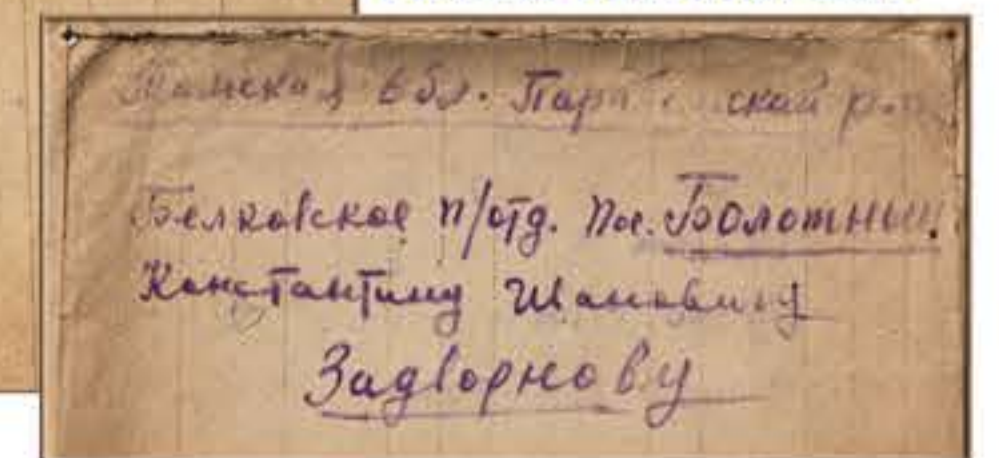 Томская обл. Парабельский р-н
Белковское п/отд. пос. Болотный.
Константину Ивановичу
Задворнову